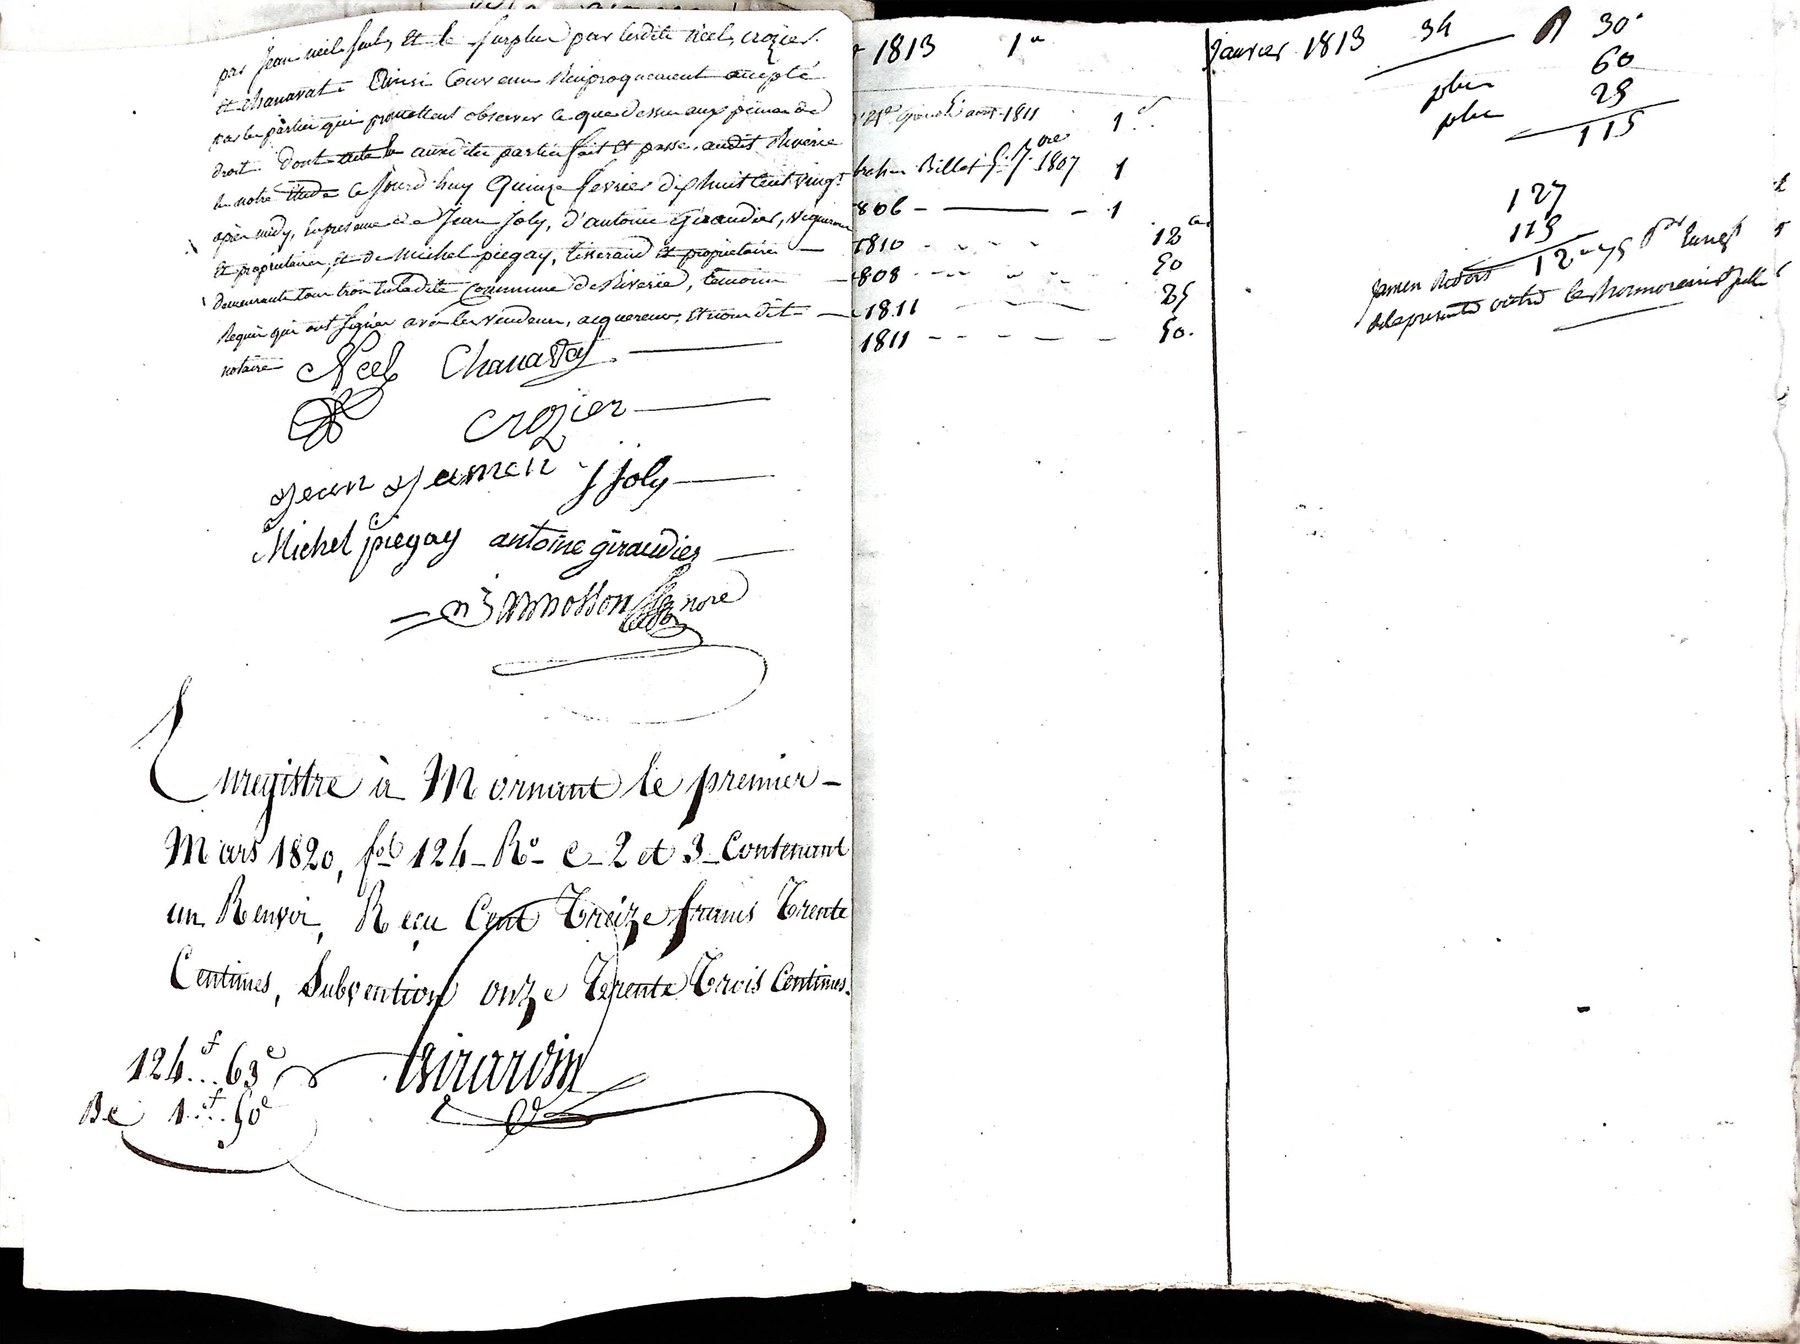 par Jean neel seul, et le surplus par lesdits Néel, crozier
et chanavat. Ainsi convenu réciproquement accepté
par les parties qui promettent observer ce que dessus aux peines de
droit. Dont acte auxdites parties fait et passé, audit Riverie
en notre étude ce jourd'huy quinze fevrier dix huit cent vingt
après midy, en présence de Jean Joly, d'antoine Giraudier, vigneron
et propriétaires, et de Michel piegay, tisserand et propriétaire
demeurants tous trois en ladite Commune de Riverie, témoins
Requis qui ont signés avec les vendeurs, acquereur, et nous dit
notaire Neel Chanavat
crozier
Jean Jamen J Joly
Michel piegay antoine giraudier
nore
Enregistré à Mornant le premier
Mars 1820, fol 124 Ro C 2 et 3 Contenant
un Renvoi, Reçu Cent Treize francs Trente
Centimes, Subvention onze Trente Trois Centimes.
124 f 63 c
De 1 f 50 c
Girardin
1813 1
aout 1811 1
Billet 1807 1
1806 - - 1
1810 - - - 12
1808 - - - 50
1811 25
1811 - - - 50.
Janvier 1813 34 30
plus 60
plus 25
115
127
115
12
Jamen